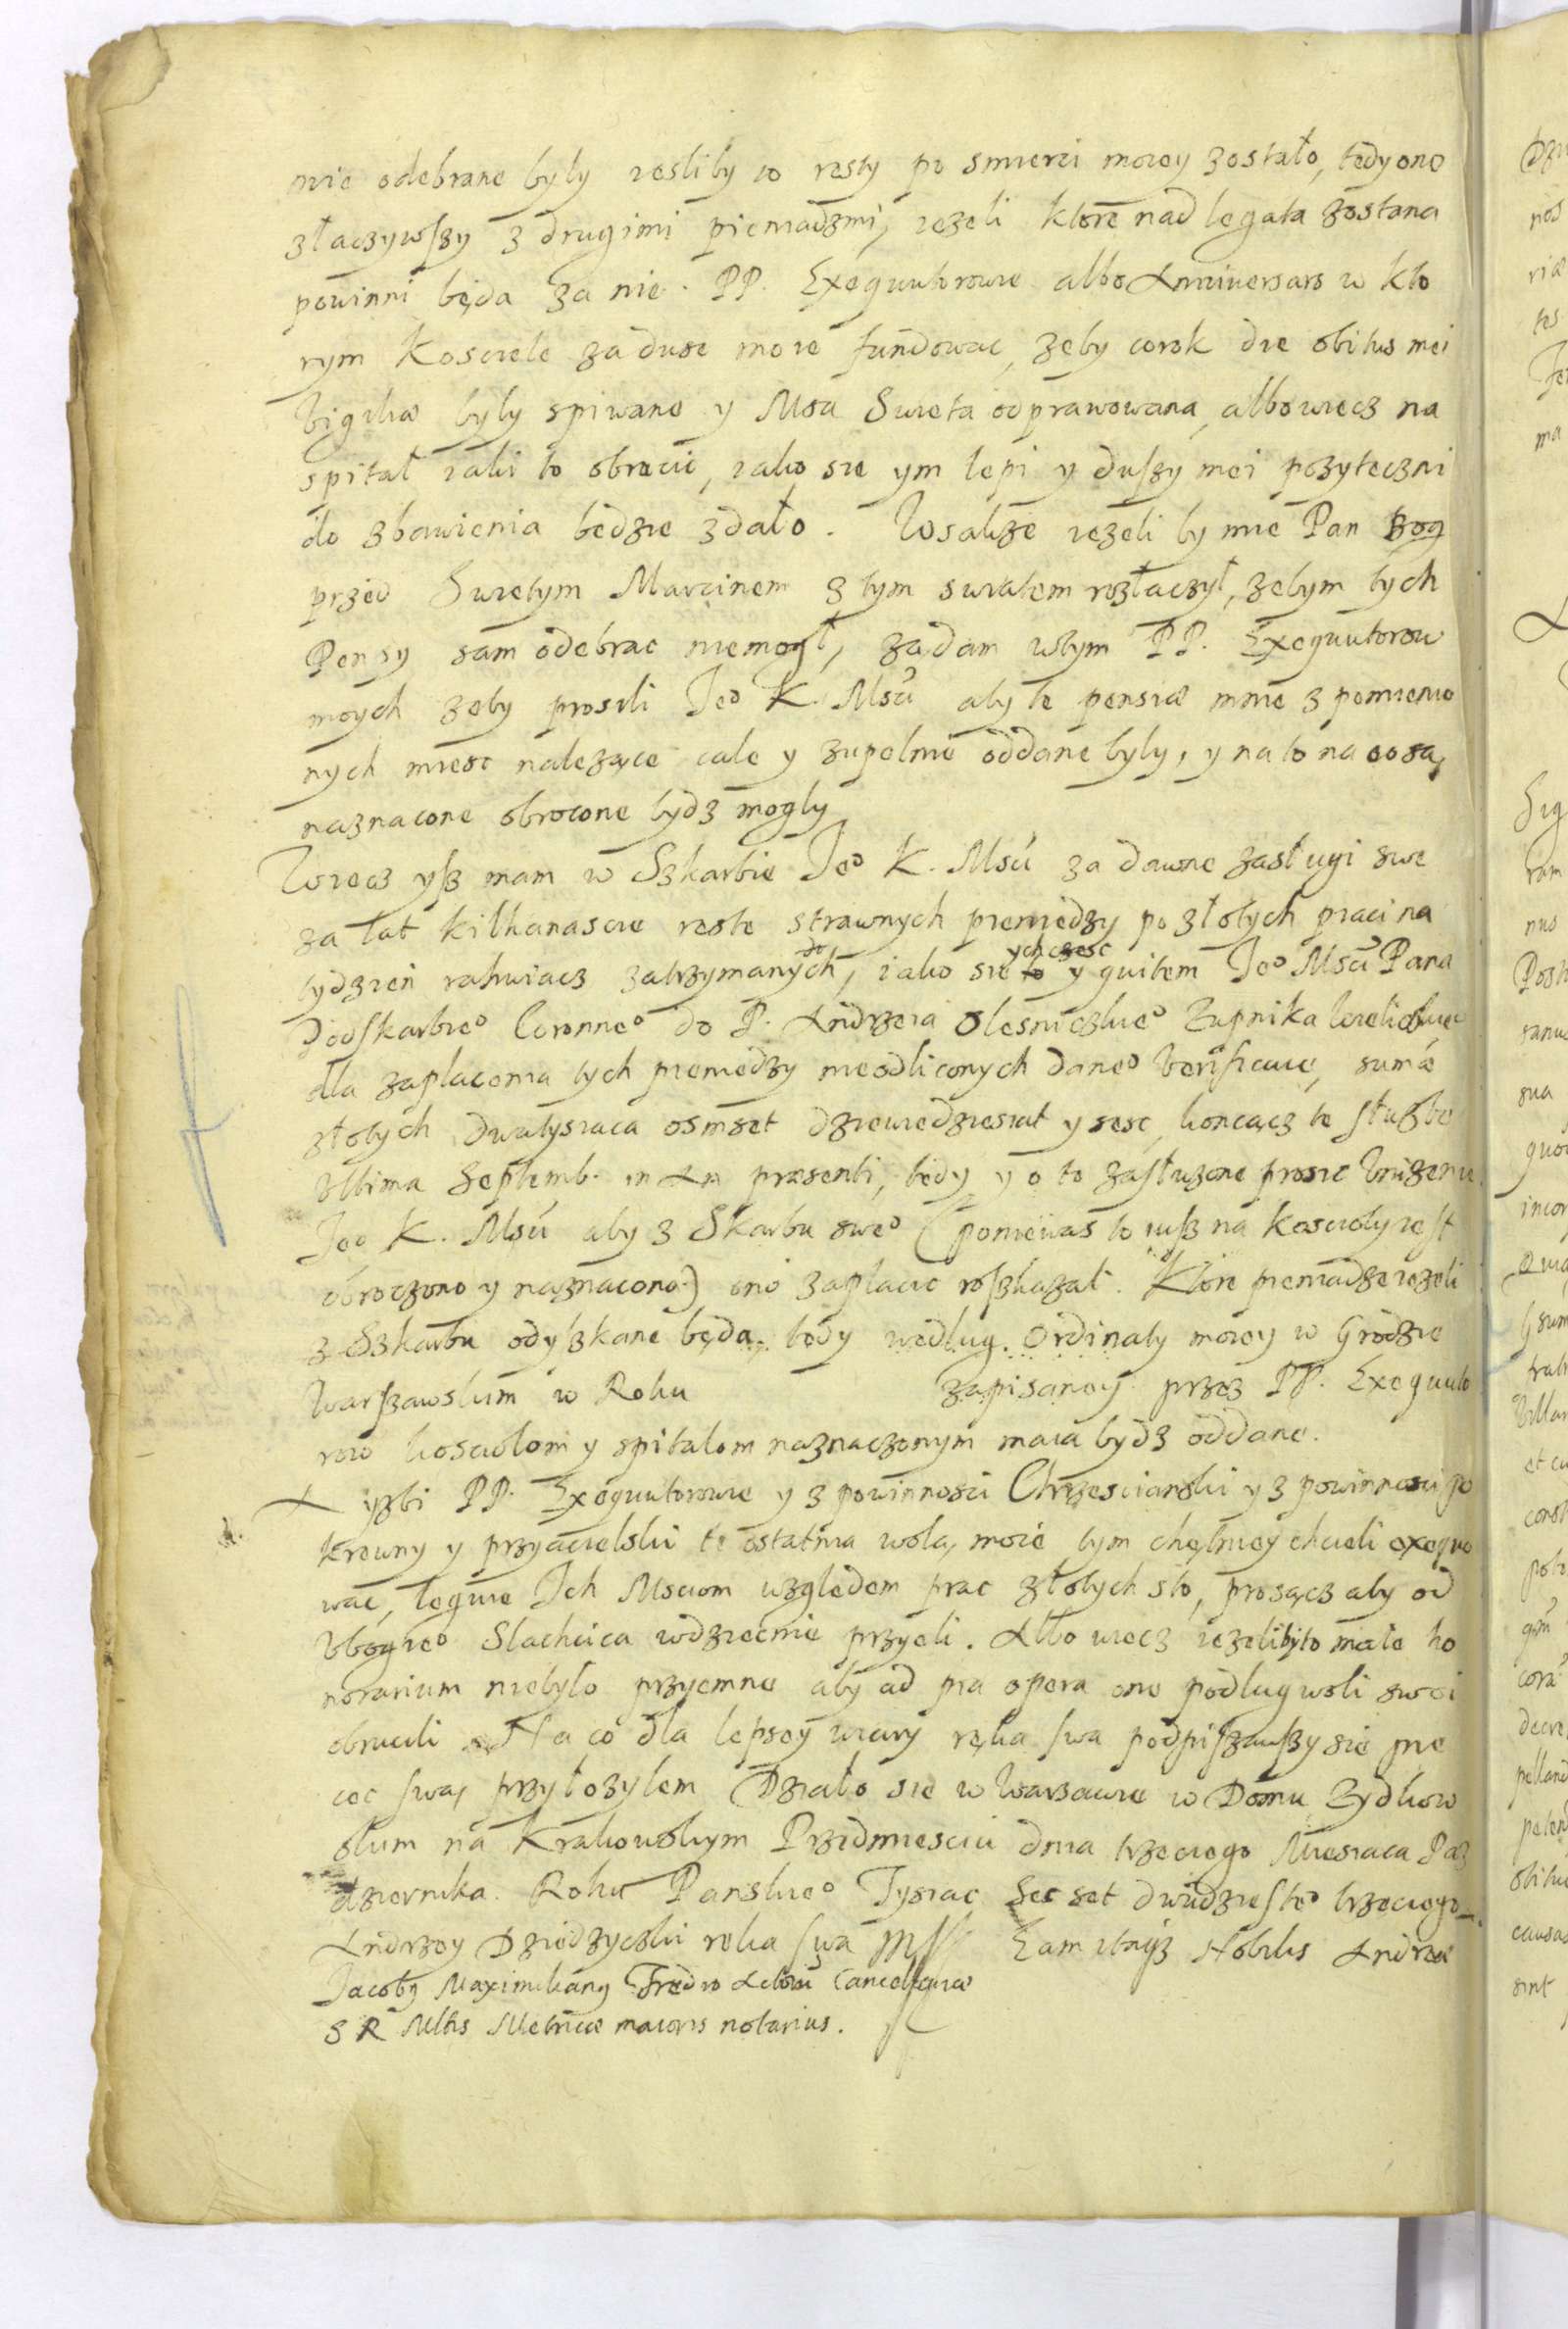 mie odebrane były iesliby co resty po smierci moiey zostało, tedy ono
złączywszy z drugimi pieniadzmi, iezeli ktore nad legata zostana
powinni będa za nie PP. Exequutorowie albo Anniuersars w kto
rym Kosciele za dusę moię fundowac, zeby corok die obitus mei
Vigiliæ były spiwane y Msa Swieta odprawowana, albo wiecz na
spital iaki to obrocic, iako sie ym lepi y duszy mei pozyteczni
do zbawienia będzie zdało. Wsakze iezeli by mie Pan Bog
przed Swietym Marcinem z tym swiatem rozłaczył, zebym tych
Pensy sam odebrac niemogł, ządam wtym PP. Exequutorow
moych zeby prosili Jeo K. Msci aby te pensiæ mnie z pomienio
nych miesc nalezące cale y zupelnie oddane byly, y na to na co są,
naznacone obrocone bydz mogly
Wiecz ysz mam w Szkarbie Jeo K. Msci za dawne zasługi swe
za lat kilkanascie restę strawnych pieniedzy po złotych piaci na
tydzien rahuiacz zatrzymanych, iako sie to do ych czesc y quitem Jeo Msci Pana
Podskarbieo Coronneo do P. Andrzeia Olesniczkieo Zupnika Wielickieo
dla zaplacenia tych pieniedzy nieodliconych daneo Verificuie, sumæ
złotych dwatysiaca osmset dziewiedziesiat y sesc, koncącz te służbe
Vltima Septemb. in An præsenti, tedy y o to zasłuzone prosic Vnizenie
Jeo K. Msci aby z Skarbu sweo (poniewas to iusz na Koscioly iest
obroczono y naznacono) ono zaplacic roszkazał. Ktore pieniadze iezeli
z Szkarbu odyszkane będa, tedy według Ordinaty moiey w Grodzie
Warszawskim w Roku zapisaney przez PP. Exequuto
row kosciołom y spitalom naznaczonym maia bydz oddane.
A yzbi PP. Exequutorowie y z powinnosci Chrzescianski y z powinnosci po
krewny y przyacielski tę ostatnia wolą moię tym chętniey chcieli exequo
wac, leguie Ich Msciom względem prac złotych sto, prosącz aby od
Vbogieo Slachcica wdziecnie przyeli. Albo wiecz iezeliby to małe ho
norarium niebyło przyemne aby ad pia opera ono podlug woli swoi
obrucili. Na co dla lepsey wiary ręka swa podpiszawszy się pie
cec swą przyłozylem Działo sie w Warsawie w Domu Zydkow
skim na Krakowskym Przedmiesciu dnia trzeciego Miesiaca Paz
dziernika. Roku Panskieo Tysiac Sec set dwudziesteo trzeciego
Andrzey Dziedzyczki reka swa Eam itaqz Nobilis Andreæ
Jacobq Maximilianq Fredro Actorum Cancellariæ
S R Mttis Metricæ maioris notarius.